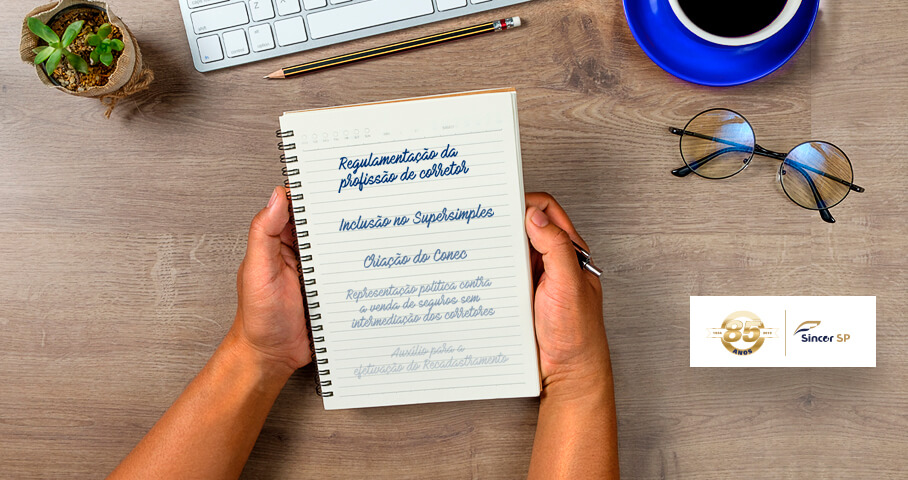 Regulamentação da
profissão de corretor
Inclusão no Supersimples
Criação do Conec
Representação política contra
a venda de seguros sem
intermediação dos corretores
Auxílio para a
efetivação do Recadastramento
85
ANOS
Sincor SP